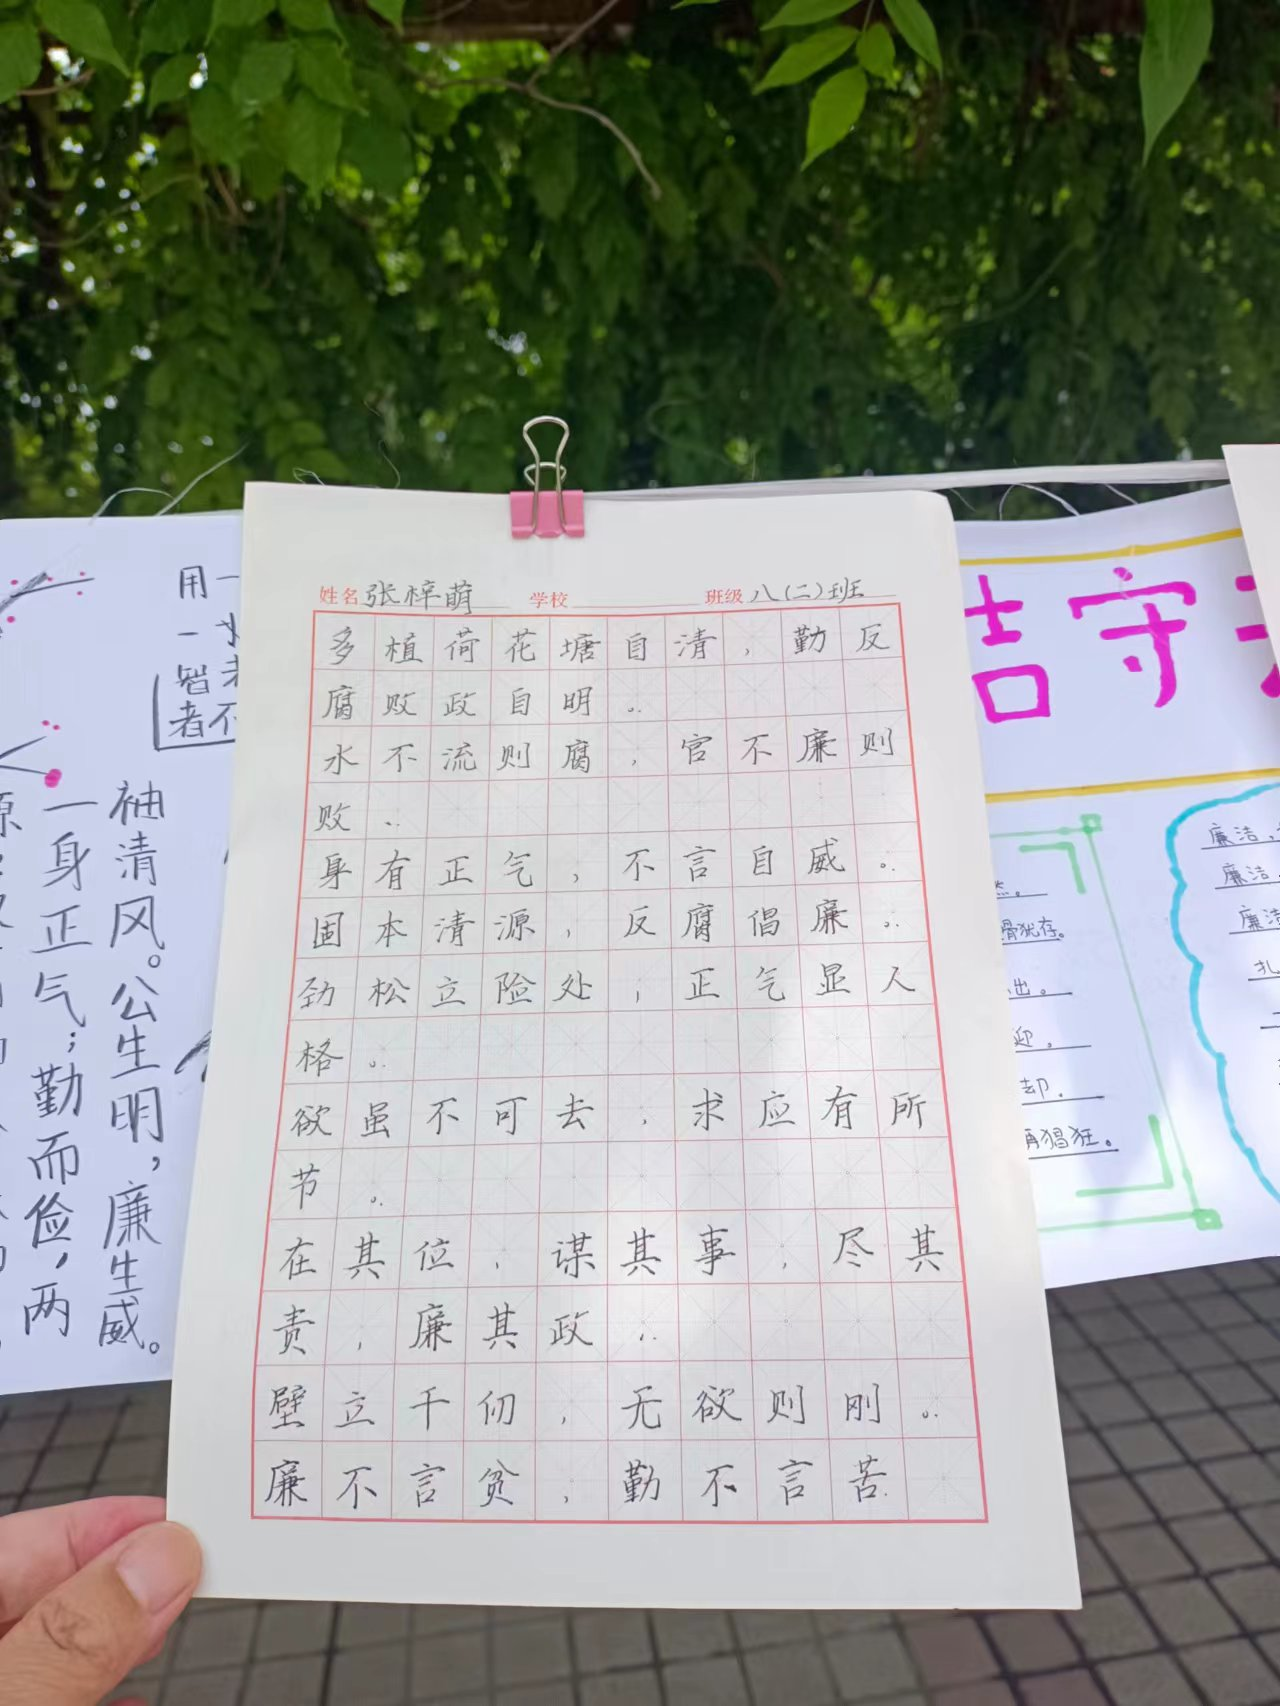 姓名 张梓萌 学校 班级 八(二)班
多植荷花塘自清,勤反
腐败政自明。
水不流则腐,官不廉则
败.
身有正气,不言自威。
固本清源,反腐倡廉。
劲松立险处,正气显人
格。
欲虽不可去,求应有所
节。
在其位,谋其事,尽其
责,廉其政.
壁立千仞,无欲则刚。
廉不言贫,勤不言苦.
用一
一
智者不
袖清风。公生明,廉生威。
一身正气;勤而俭,两
洁守
廉洁
廉洁
廉洁
骨犹存。
出。
迎,
却,
再猖狂。